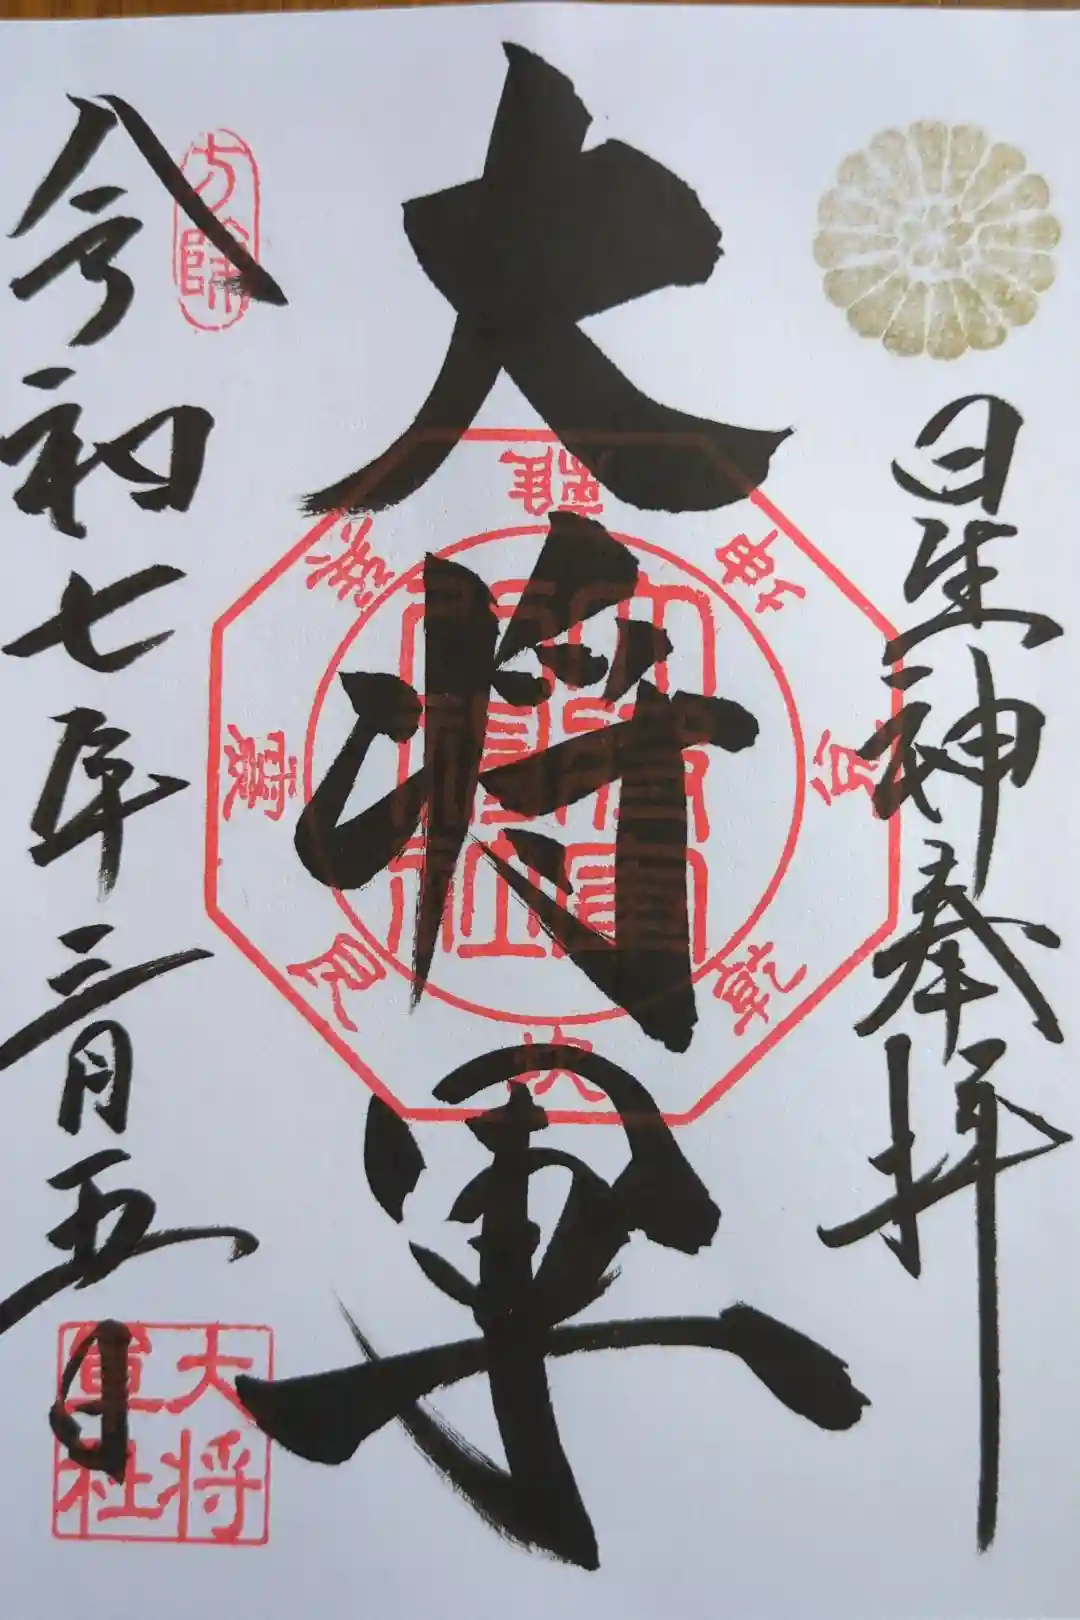 星神奉拝
大将軍
令和七年三月五日
方除
乾
坎
艮
震
巽
離
坤
兌
大将軍社